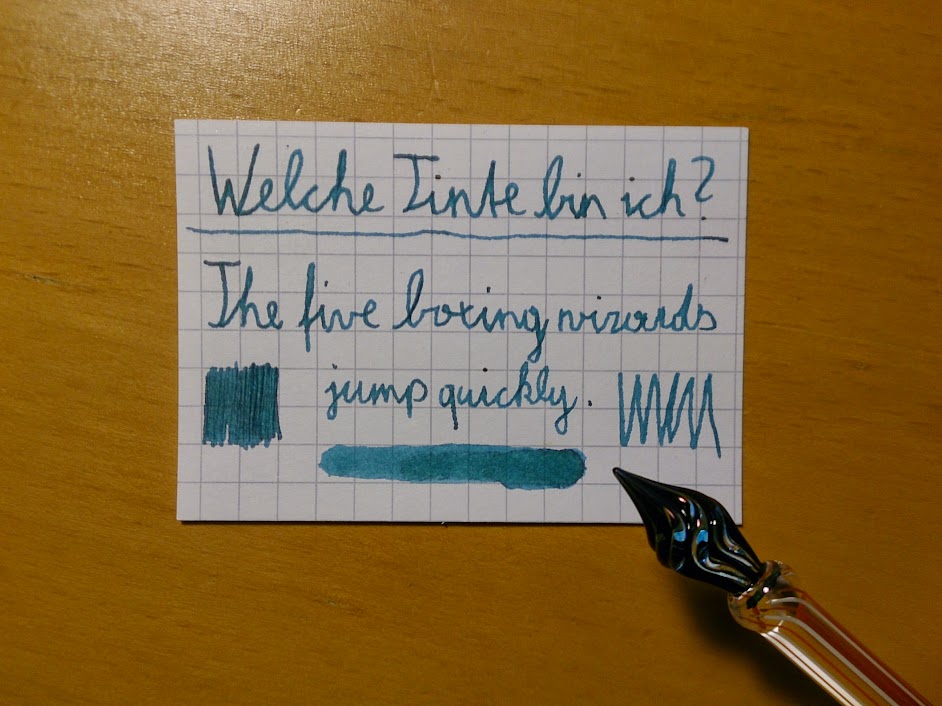 Welche Tinte bin ich?
The five boxing wizards
jump quickly.